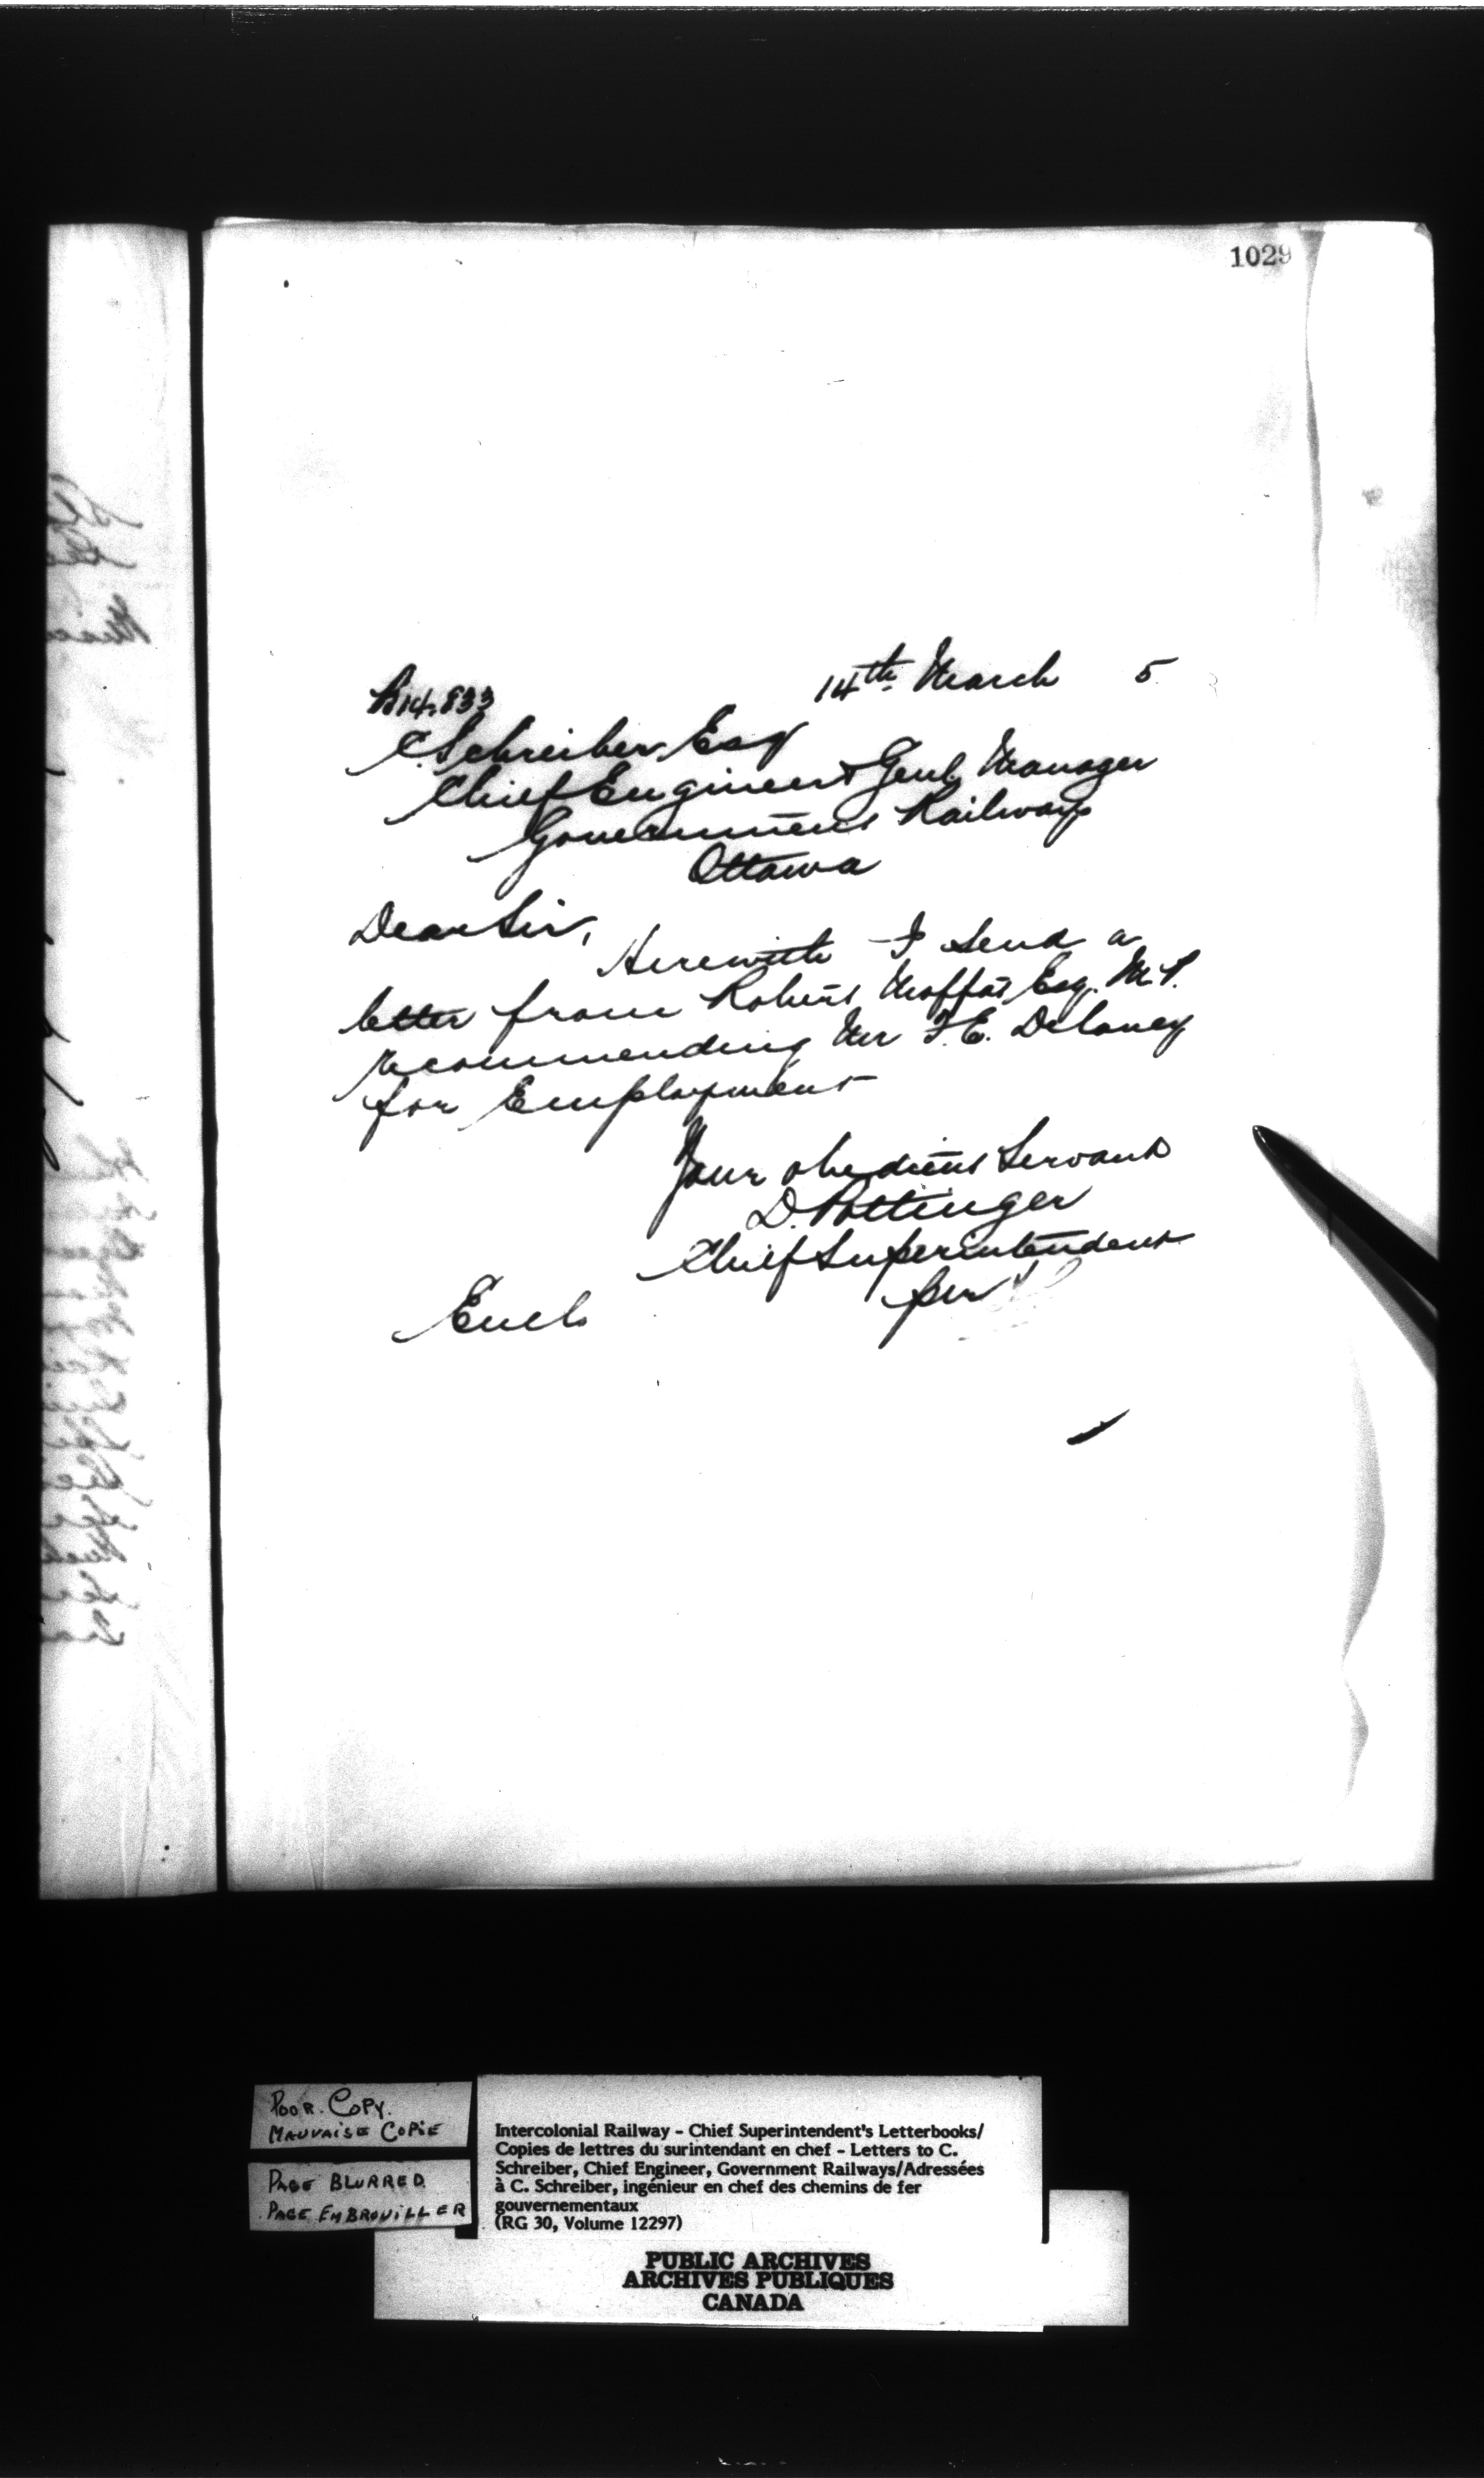 1029
14th March 5
C. Schreiber Esq
Chief Engineer & Genl Manager
Government Railways
Ottawa
Dear Sir,
Herewith I send a
letter from Robert Moffat Esq. M.P.
recommending Mr F. E. Delaney
for Employment
Your obedient Servant
D. Pottinger
Chief Superintendent
per
Encl.
POOR. COPY.
MAUVAISE COPIE
PAGE BLURRED
PAGE EMBROUILLER
Intercolonial Railway - Chief Superintendent's Letterbooks/
Copies de lettres du surintendant en chef - Letters to C.
Schreiber, Chief Engineer, Government Railways/Adressées
à C. Schreiber, ingénieur en chef des chemins de fer
gouvernementaux
(RG 30, Volume 12297)
PUBLIC ARCHIVES
ARCHIVES PUBLIQUES
CANADA